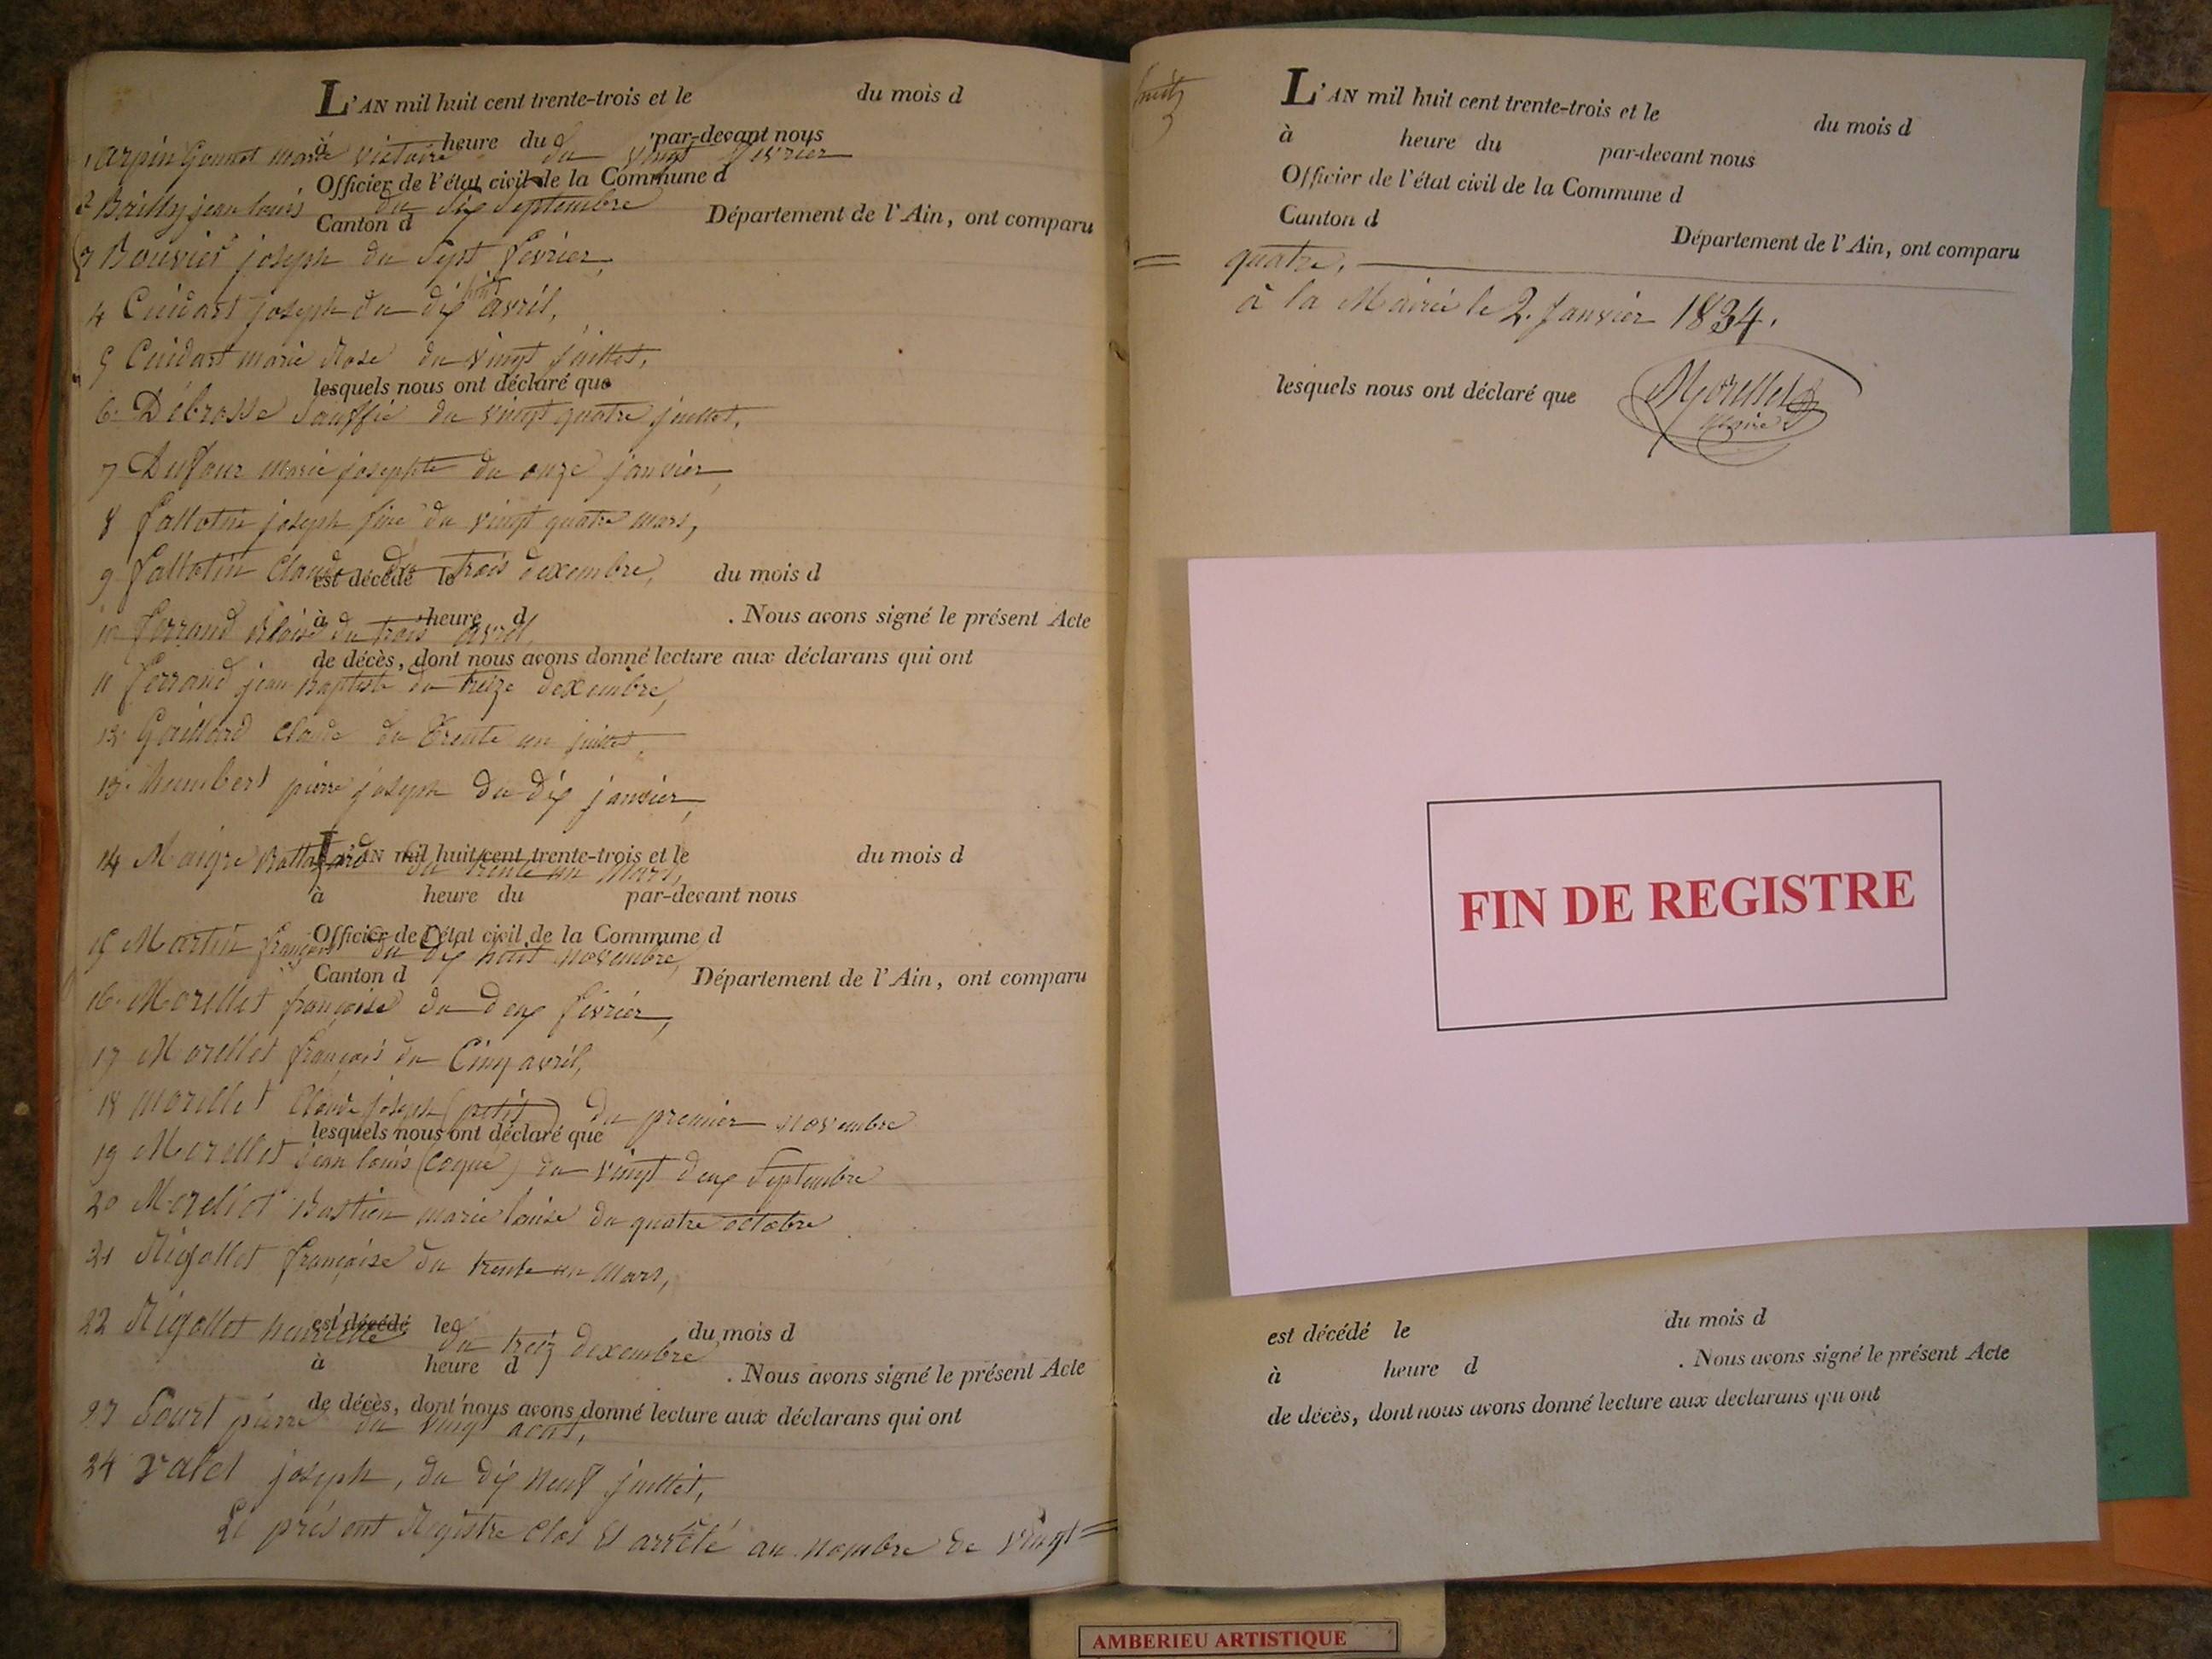 L'AN mil huit cent trente-trois et le du mois d
à heure du par-devant nous
1 arpin Gonnet marie victoire du vingt février
Officier de l'état civil de la Commune d
2 Bailly jean louis du dix Septembre
Canton d Département de l'Ain, ont comparu
3 Bouvier joseph du Sept février,
4 Cuidart joseph du dix huit avril,
5 Cuidart marie Rose du vingt juillet,
lesquels nous ont déclaré que
6 Débrosse Sauffie du vingt quatre juillet,
7 Dufour marie josephte du onze janvier,
8 fallotin joseph fine du vingt quatre mars,
9 fallotin Claude du trois dexembre,
est décédé le du mois d
à heure d . Nous avons signé le présent Acte
10 ferrand du trois avril,
de décès, dont nous avons donné lecture aux déclarans qui ont
11 ferrand jean Baptiste du treize dexembre,
12 Gaillard Claude du Trente un juillet,
13 humbert pierre joseph du dix janvier,
L'AN mil huit cent trente-trois et le du mois d
14 Maigre du trente un Mars,
à heure du par-devant nous
Officier de l'état civil de la Commune d
15 Martin françois du dix huit novembre,
Canton d Département de l'Ain, ont comparu
16 Morellet françoise du deux février,
17 Morellet françois du Cinq avril,
18 morellet Claude joseph (petit) du premier novembre
lesquels nous ont déclaré que
19 Morellet jean louis (coque) du vingt deux Septembre
20 Morellet Bastien marie louise du quatre octobre
21 Rigollet françoise du trente un Mars,
est décédé le du mois d
22 Rigollet henriette du treiz dexembre
à heure d . Nous avons signé le présent Acte
de décès, dont nous avons donné lecture aux déclarans qui ont
23 Sourt pierre du vingt aout,
24 valet joseph, du dix neuf juillet,
Le présent Registre Clos et arrêté au nombre de vingt =
L'AN mil huit cent trente-trois et le du mois d
à heure du par-devant nous
Officier de l'état civil de la Commune d
Canton d Département de l'Ain, ont comparu
= quatre.
à la Mairie le 2. Janvier 1834.
lesquels nous ont déclaré que
Morellet
Maire
FIN DE REGISTRE
est décédé le du mois d
à heure d . Nous avons signé le présent Acte
de décès, dont nous avons donné lecture aux declarans qui ont
AMBERIEU ARTISTIQUE